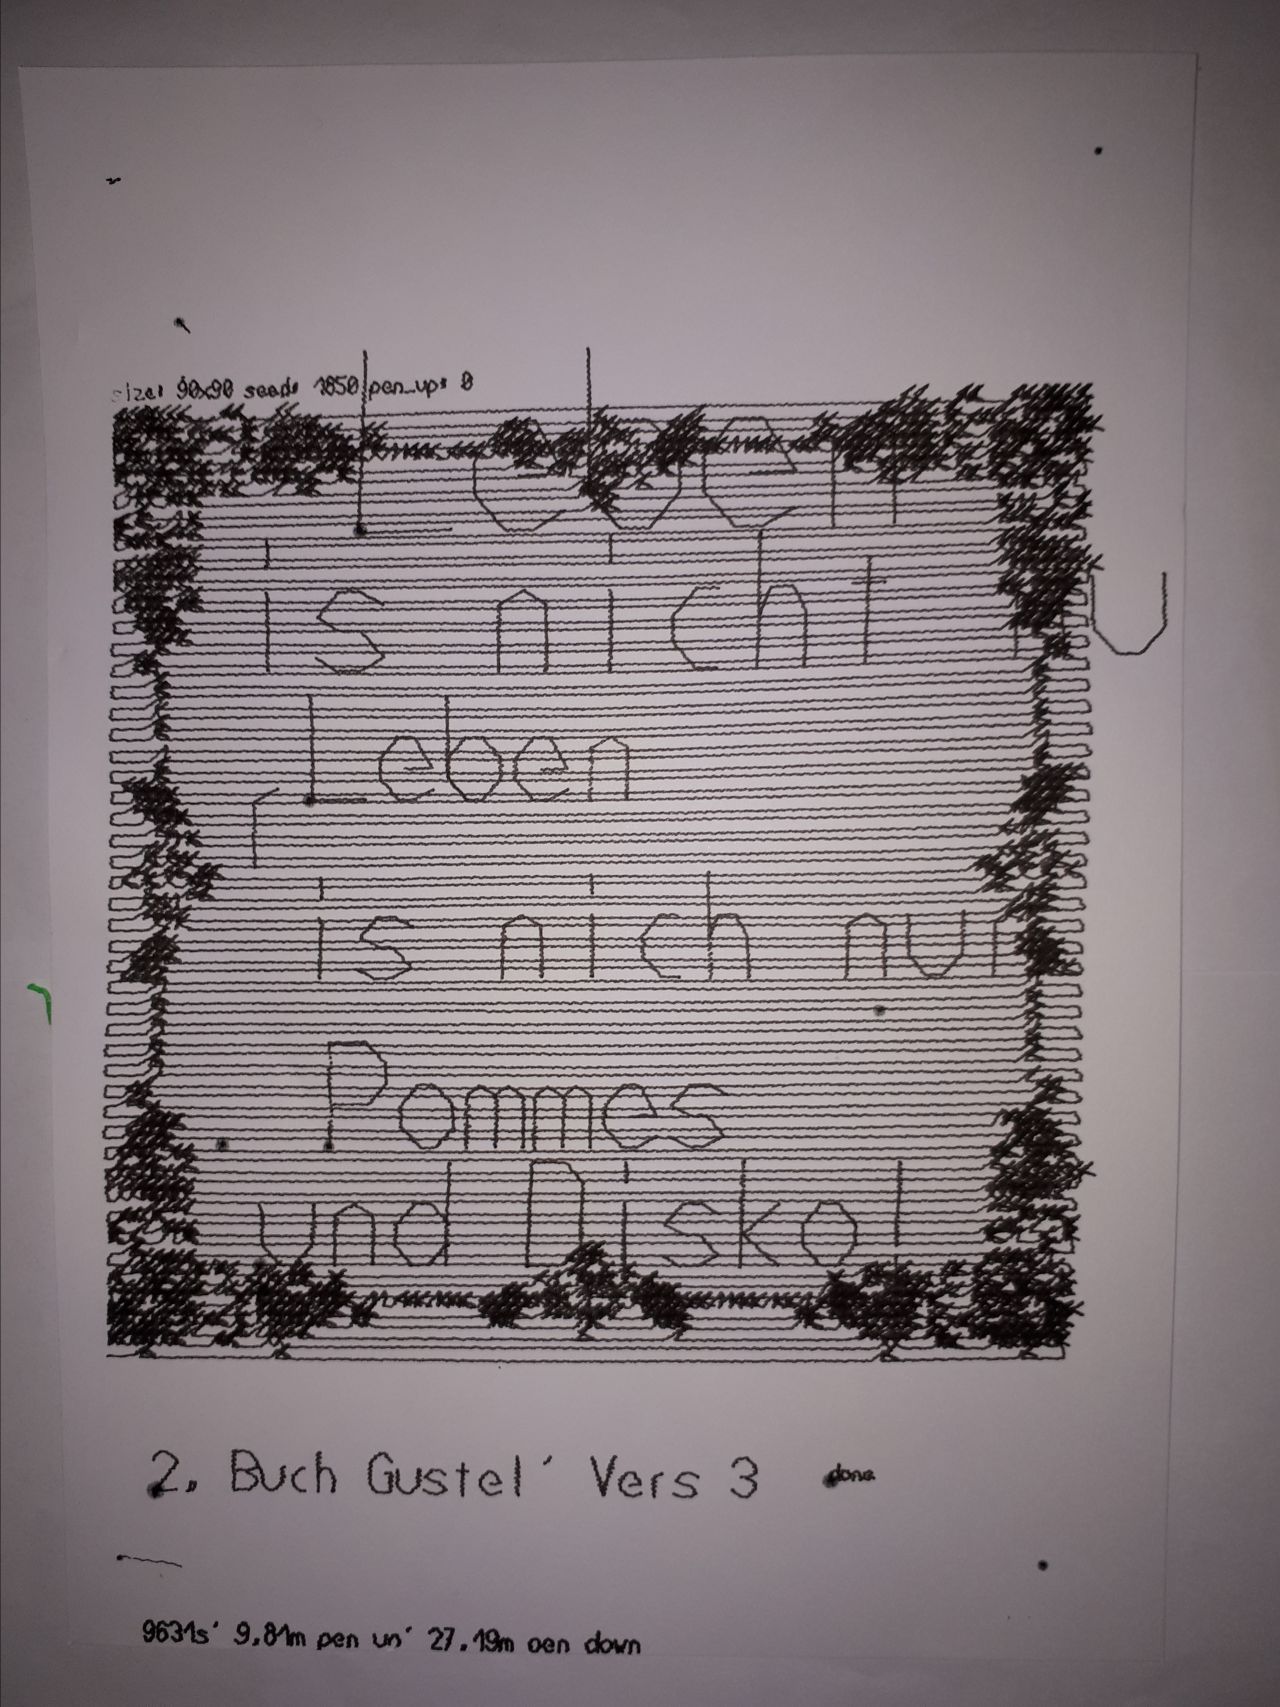 size: 90x90 seed: 1850 pen_up: 0
Leben
is nicht nu
Leben
r
is nich nur
Pommes
und Disko!
2. Buch Gustel' Vers 3 done
9631s' 9.81m pen un' 27.19m oen down